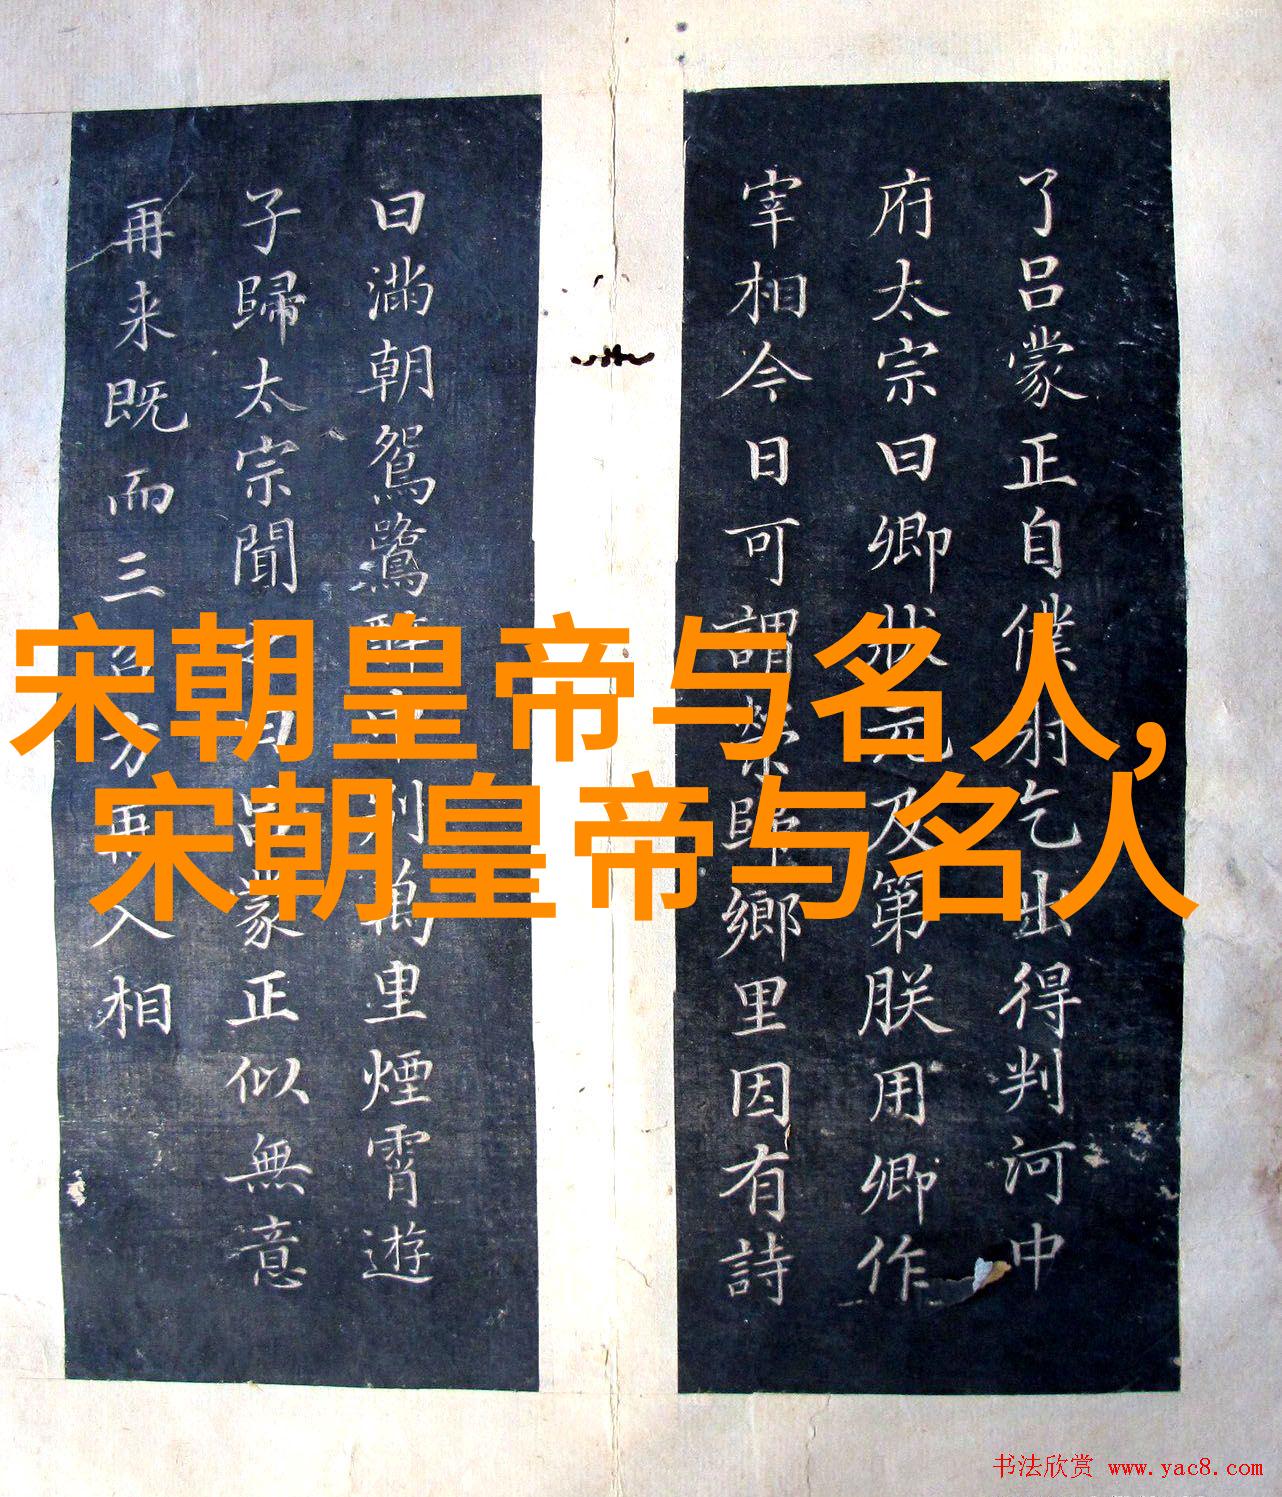 宋朝皇帝与名人,
宋朝皇帝与名人
了呂蒙正自僕射乞出得判河中
府太宗曰卿狀元及第朕用卿作
宰相今日可謂榮歸鄉里因有詩
曰滿朝鴛鷺醉中別萬里煙霄遊
子歸太宗聞曰呂蒙正似無意
再来既而三召方再入相
书法欣赏 www.yac8.com